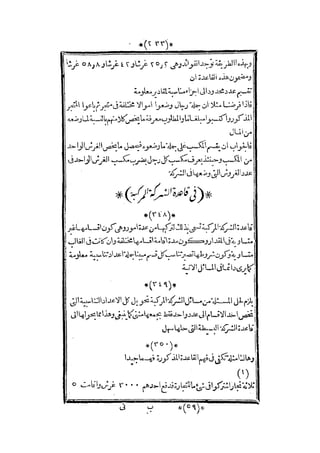 *(٢٣٣)*
وبهذه الطريقة توجد الفوائد وهى ٢٥٫٢ غرشا و ٤٢ غرشا و ٥٨٫٨ غرشا
ومضمون هذه القاعدة ان
تقسيم عدد محدود الى اجزاء مناسبة لمقادير معلومة
فاذا فرضنا مثلا ان جملة رجال وضعوا اموالا مختلفة فى متجر ثم باعوا المتجر
المذكور واكتسبوا مبلغا ما والمطلوب معرفة ما يخص كلا منهم بالنسبة لما وضعه
من المال
فالجواب ان يقسم المكسب على جملة ما وضعوه فيحصل ما يخص الغرش الواحد
من المكسب وحينئذ يعرف مكسب كل رجل بضرب مكسب الغرش الواحد فى
عدد الغروش التى وضعها فى الشركة
*(فى قاعدة الشركة المركبة)*
*(٣٤٨)*
قاعدة الشركة المركبة تسمى بذلك لتركبها من عدة امور وهى كون اقسامها غير
متساوية فى المقدار وكون مدة اقامة اقسامها مختلفة وان كانت فى الغالب
متساوية وكون شروطها تصير تناسب كل قسم مبينا بجملة اعداد تناسبية معلومة
كما يرى ذلك فى المسائل الآتية
*(٣٤٩)*
يلزم لحل المسئلة من مسائل الشركة المركبة تحويل كل الاعداد التناسبية التى
تخص احد الاقسام الى عدد واحد فقط بجمعها متى كما ينبغى وهذا مما يحولها الى
قاعدة الشركة البسيطة التى حلها سهل
*(٣٥٠)*
وهاك امثلة تكفى فى فهم القاعدة المذكورة فهما جيدا
(١)
ثلاثة تجار اشتركوا فى شئ ما للتجارة فدفع احدهم ٣٠٠٠ غرش واقامت ٥
*(٥٩)* ب فى